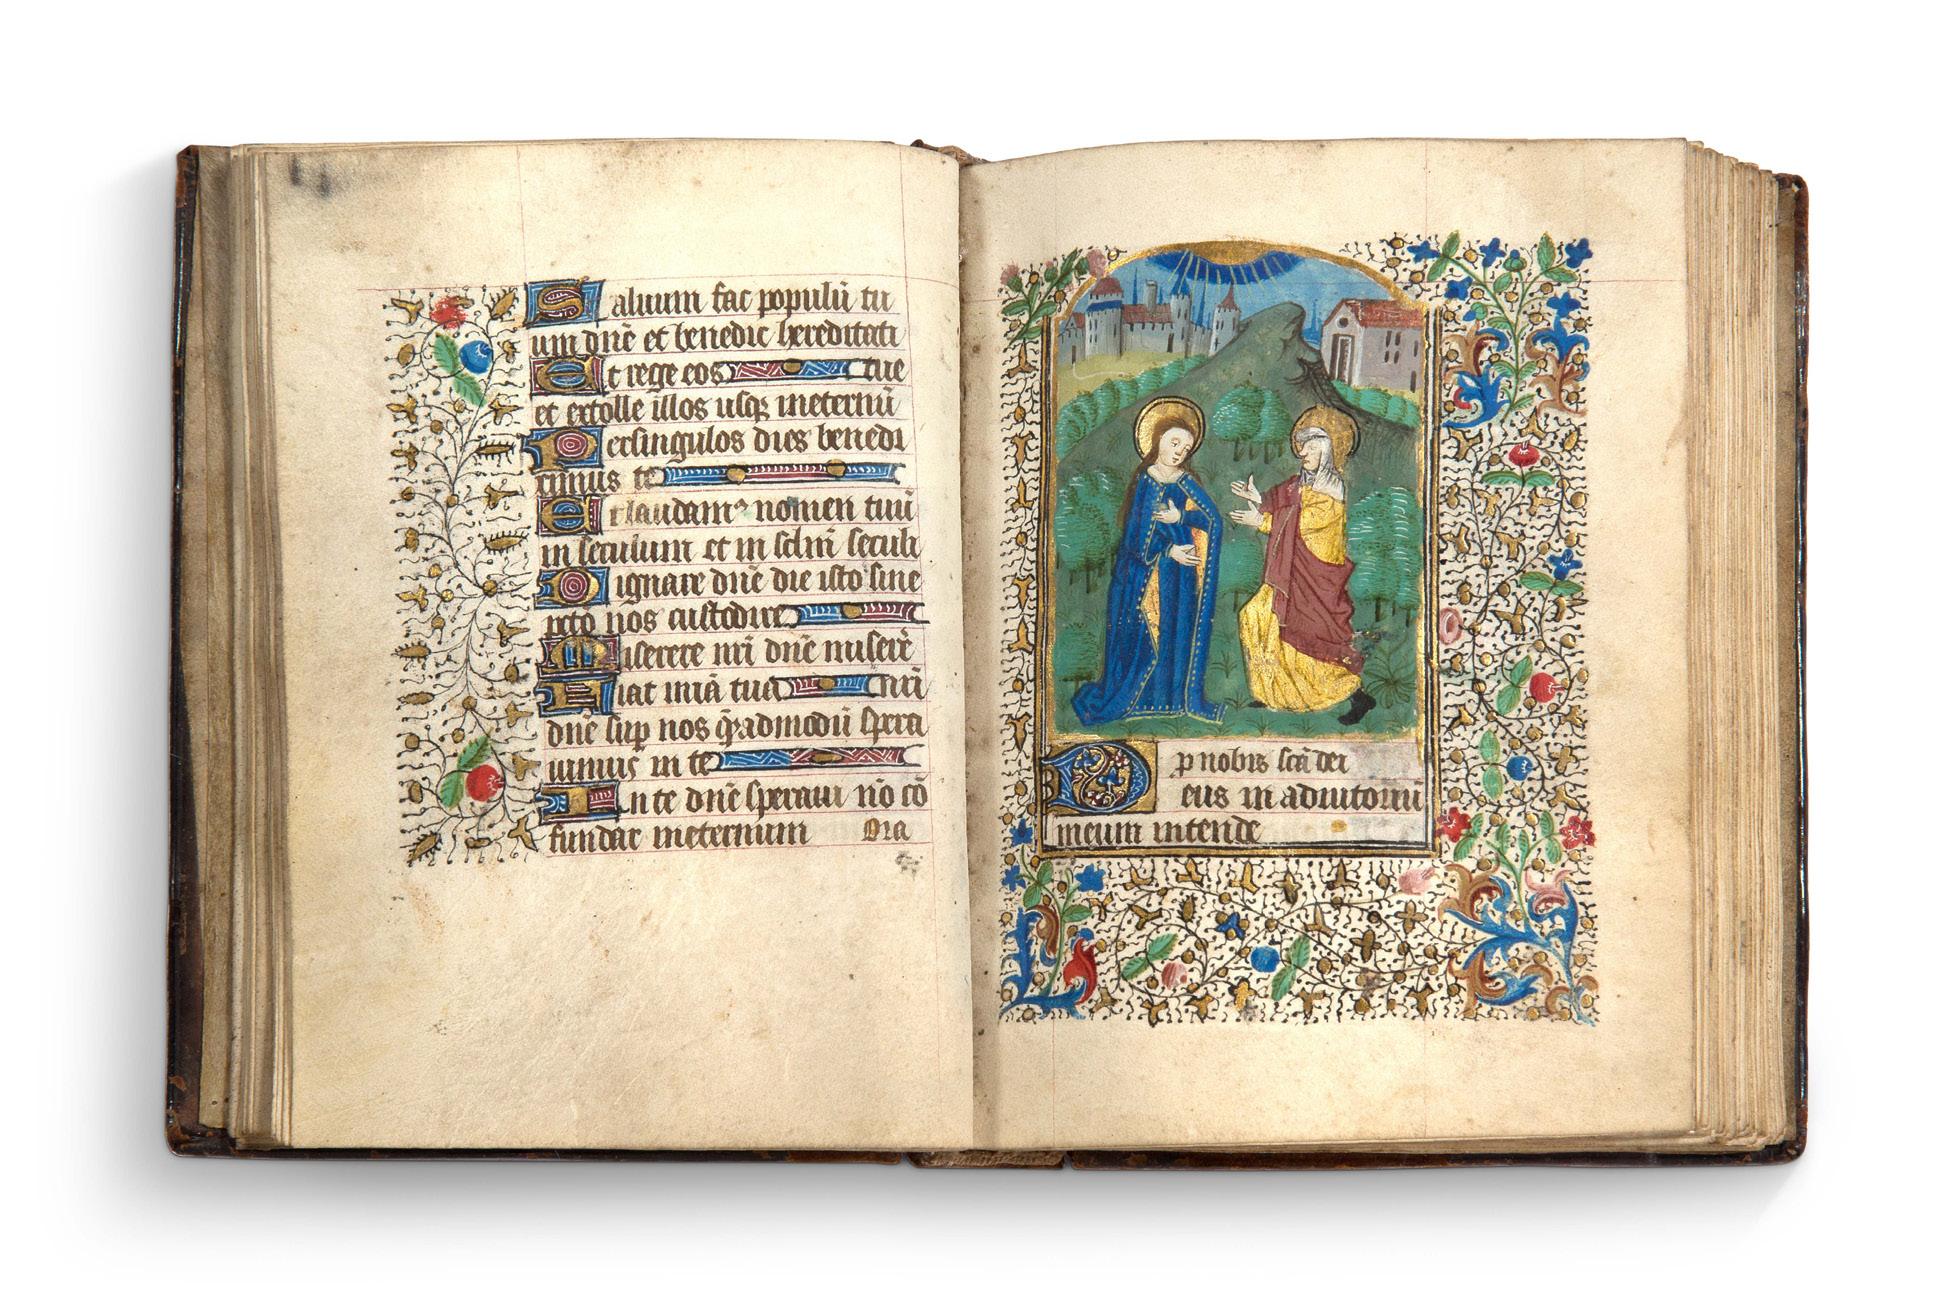 Saluum fac populū tu
um dn̄e et benedic hereditati
Et rege eos tue
et extolle illos usqꝫ ineternū
Per singulos dies benedi
cimus te
Et laudamꝰ nomen tuū
in seculum et in sclm̄ seculi
Dignare dn̄e die isto sine
pcto nos custodire
Miserere nr̄i dn̄e miserē
Fiat mīa tua nūi
dn̄e sup nos q̄madmodū spera
uimus in te
In te dn̄e speraui nō cō
fundar ineternum Ora
p nobis scā dei
Deus in adiutoriū
meum intende